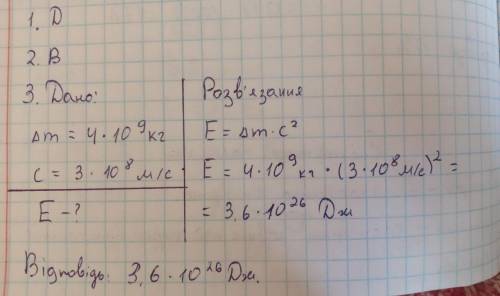 1. D
2. B
3. Дано:
Δm = 4·10⁹ кг
c = 3·10⁸ м/с
E - ?
Розв'язання
E = Δm·c²
E = 4·10⁹ кг · (3·10⁸ м/с)² =
= 3,6·10²⁶ Дж
Відповідь: 3,6·10²⁶ Дж.